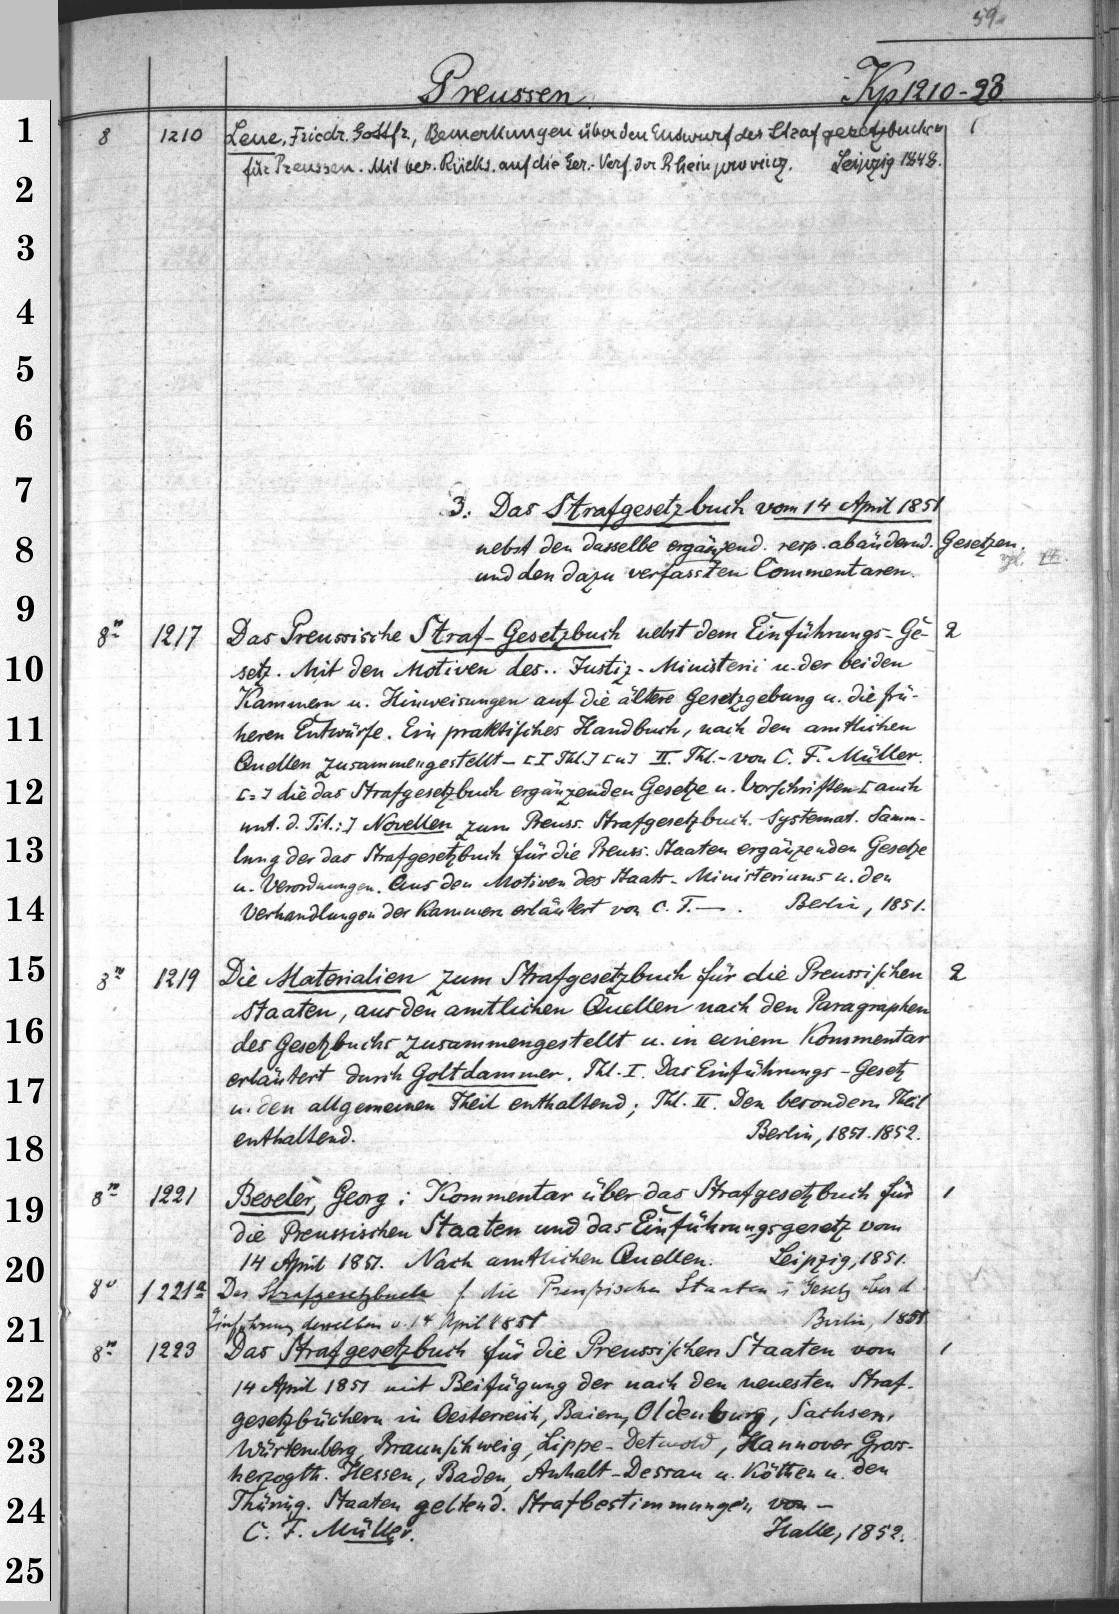 59.
Preussen. Kp 1210-23
8 1210 Leue, Friedr. Gottfr., Bemerkungen über den Entwurf des Strafgesetzbuches 1
für Preussen. Mit bes. Rücks. auf die Ger.-Verf. der Rheinprovinz. Leipzig 1848.
3. Das Strafgesetzbuch vom 14 April 1851
nebst den dasselbe ergänzend. resp. abändernd. Gesetzen.
vgl.
und den dazu verfassten Commentaren.
8º 1217 Das Preussische Straf-Gesetzbuch nebst dem Einführungs-Ge- 2
setz. Mit den Motiven des.. Justiz-Ministerii u. der beiden
Kammern u. Hinweisungen auf die ältere Gesetzgebung u. die frü-
heren Entwürfe. Ein praktisches Handbuch, nach den amtlichen
Quellen zusammengestellt - [I Thl.] [u] II. Thl. - von C. F. Müller.
[=] die das Strafgesetzbuch ergänzenden Gesetze u. Vorschriften [auch
unt. d. Tit.:] Novellen zum Preuss. Strafgesetzbuch. Systemat. Samm-
lung der das Strafgesetzbuch für die Preuss. Staaten ergänzenden Gesetze
u. Verordnungen. Aus den Motiven des Staats-Ministeriums u. den
Verhandlungen der Kammern erläutert von C. F. — . Berlin, 1851.
8º 1219 Die Materialien zum Strafgesetzbuch für die Preussischen 2
Staaten, aus den amtlichen Quellen nach den Paragraphen
des Gesetzbuchs zusammengestellt u. in einem Kommentar
erläutert durch Goltdammer. Thl. I. Das Einführungs-Gesetz
u. den allgemeinen Theil enthaltend; Thl. II. Den besondern Theil
enthaltend. Berlin, 1851.1852.
8º 1221 Beseler, Georg: Kommentar über das Strafgesetzbuch für 1
die Preussischen Staaten und das Einführungsgesetz vom
14 April 1851. Nach amtlichen Quellen. Leipzig, 1851.
8º 1221a Das Strafgesetzbuch f. die Preußischen Staaten u. Gesetz über d.
Einführung desselben v. 14 April 1851 Berlin, 1851
8º 1223 Das Strafgesetzbuch für die Preussischen Staaten vom 1
14 April 1851 mit Beifügung der nach den neuesten Straf-
gesetzbüchern in Oesterreich, Baiern, Oldenburg, Sachsen,
Würtemberg, Braunschweig, Lippe-Detmold, Hannover Gross-
herzogth. Hessen, Baden, Anhalt-Dessau u. Köthen u. den
Thüring. Staaten geltend. Strafbestimmungen von -
C. F. Müller. Halle, 1852.
1
2
3
4
5
6
7
8
9
10
11
12
13
14
15
16
17
18
19
20
21
22
23
24
25